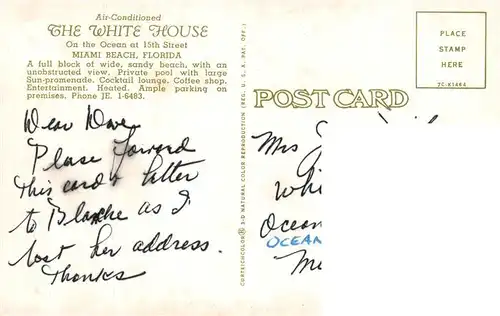 Air-Conditioned
THE WHITE HOUSE
On the Ocean at 15th Street
MIAMI BEACH, FLORIDA
A full block of wide, sandy beach, with an
unobstructed view. Private pool with large
Sun-promenade. Cocktail lounge. Coffee shop.
Entertainment. Heated. Ample parking on
premises. Phone JE. 1-6483.
Dear Dave
Please forward
this card & letter
to Blanche as I
lost her address.
Thanks
CURTEICHCOLOR® 3-D NATURAL COLOR REPRODUCTION (REG. U.S.A. PAT. OFF.)
PLACE
STAMP
HERE
7C-K1464
POST CARD
Mrs
Whi
Ocean
OCEAN